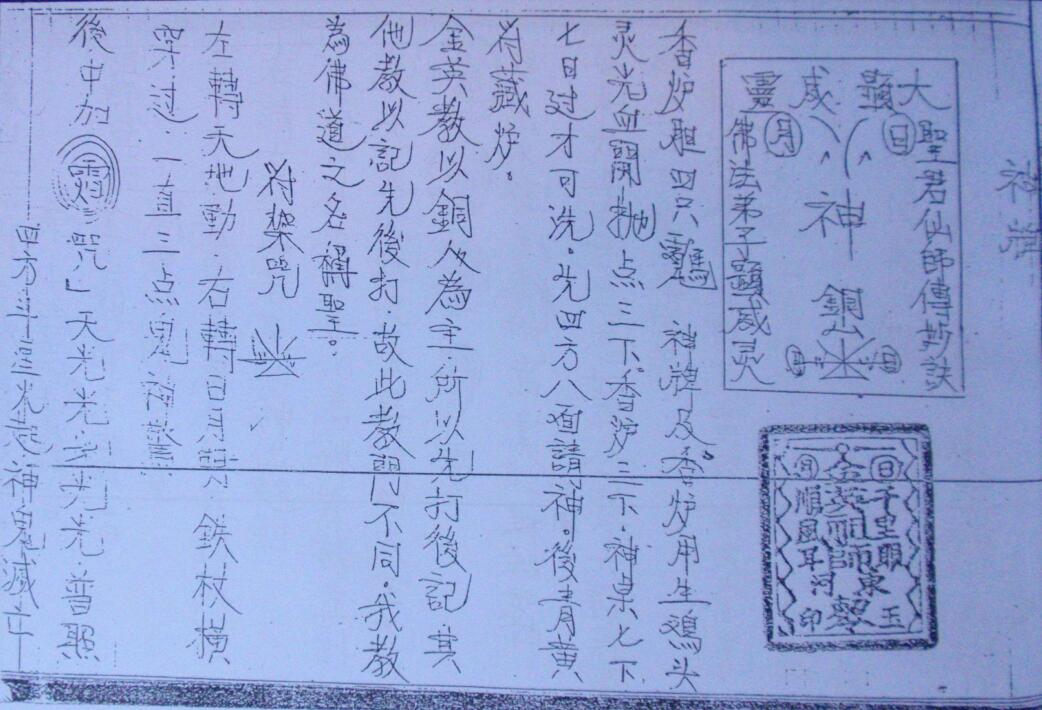 神
大聖君仙師傳訣
日
神
銅
日
月
咸
靈
月
佛法弟子顯威灵
日 千里眼
金英祖師
東
玉
敕
月 順風耳
印
香炉胆四只 神牌及香炉用生鸡头
灵光血開抛点三下香炉三下.神桌七下
七日过才可洗。先四方八面請神。後青黄
符藏炉。
金英教以銅人為主.所以先打後記.其
他教以記先後打.故此教門不同.我教
為佛道之名稱聖。
符架咒
左轉天地動.右轉日月明.鉄杖橫
穿过.一直三点鬼神驚
後中加 咒」天光光地光光.普照
神鬼滅亡